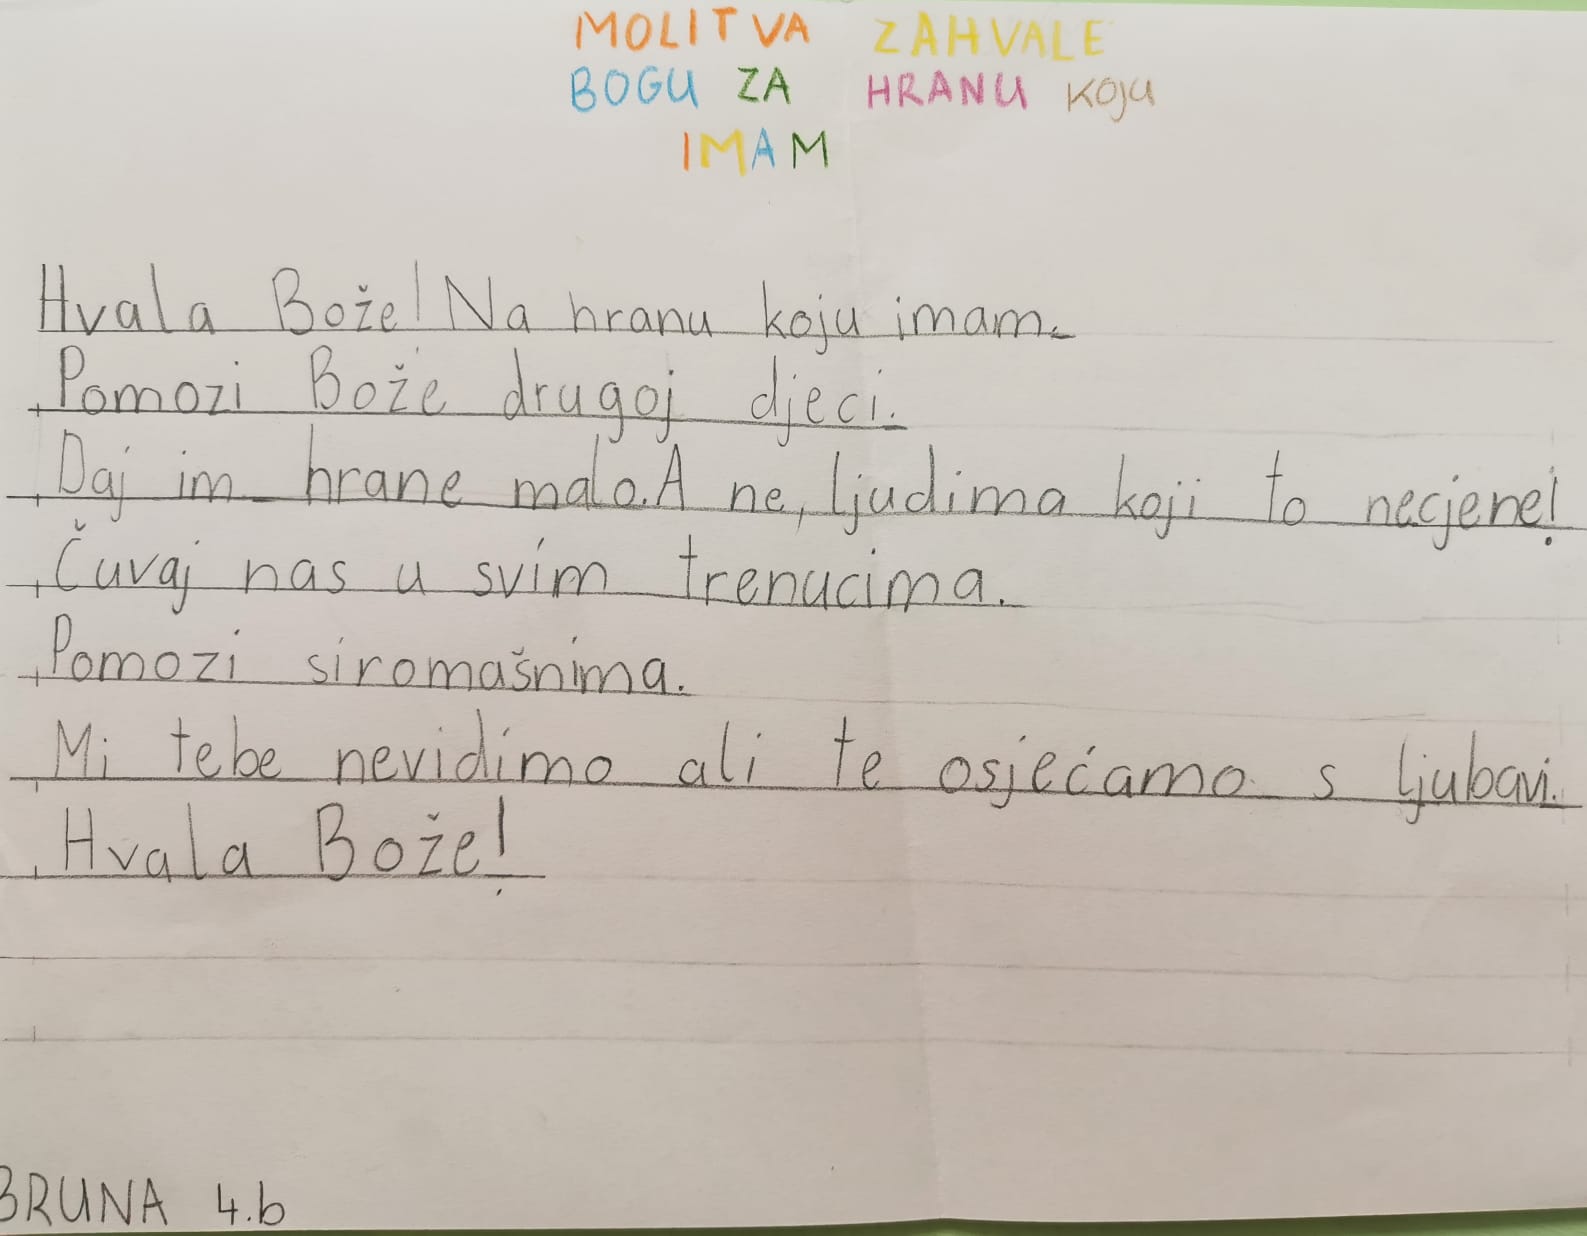 MOLITVA ZAHVALE
BOGU ZA HRANU KOJU
IMAM
Hvala Bože! Na hranu koju imam.
Pomozi Bože drugoj djeci.
Daj im hrane malo. A ne, ljudima koji to necjene!
Čuvaj nas u svim trenucima.
Pomozi siromašnima.
Mi tebe nevidimo ali te osjećamo s ljubavi.
Hvala Bože!
BRUNA 4.b